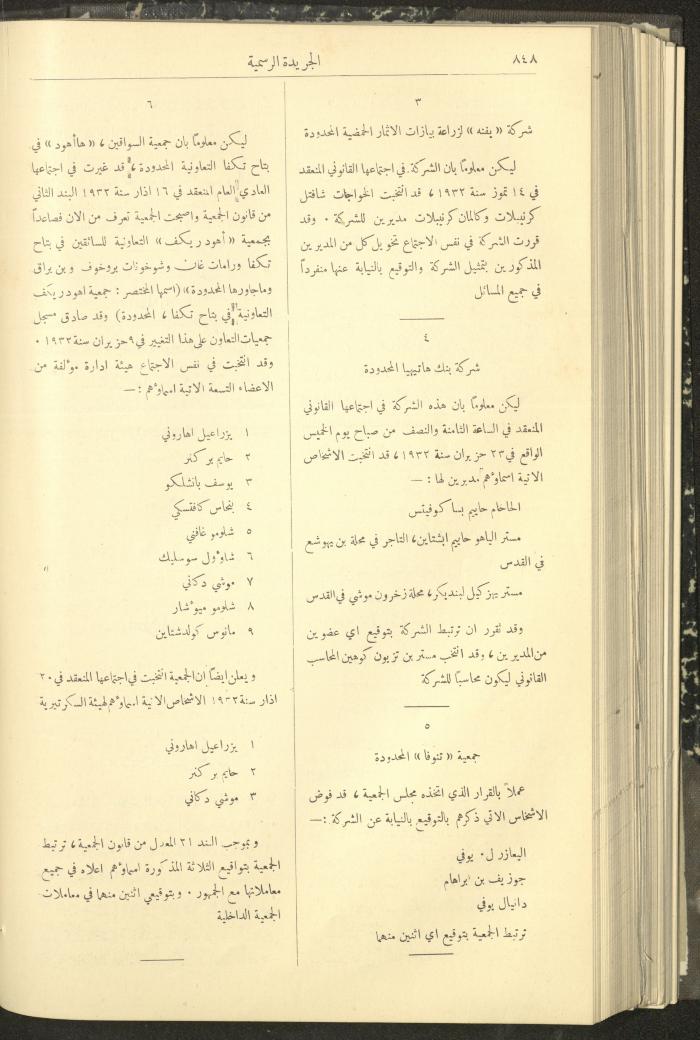 ٨٤٨
الجريدة الرسمية
٣
شركة « يفنه » لزراعة بيارات الاثمار الحمضية المحدودة
ليكن معلومًا بان الشركة في اجتماعها القانوني المنعقد
في ١٤ تموز سنة ١٩٣٢ ، قد انتخبت الخواجات شافتل
كرنيبلات وكالمان كرنيبلات مديرين للشركة . وقد
قررت الشركة في نفس الاجتماع تخويل كل من المديرين
المذكورين بتمثيل الشركة والتوقيع بالنيابة عنها منفرداً
في جميع المسائل
٤
شركة بنك هاتيهيا المحدودة
ليكن معلومًا بان هذه الشركة في اجتماعها القانوني
المنعقد في الساعة الثامنة والنصف من صباح يوم الخميس
الواقع في ٢٣ حزيران سنة ١٩٣٢ ، قد انتخبت الاشخاص
الاتية اسماؤهم مديرين لها : —
الحاخام حاييم بساكوفيتس
مستر الياهو حاييم ابشتاين، التاجر في محلة بن يهوشع
في القدس
مستر يهزكيل لبنديكر، محلة زخرون موشي في القدس
وقد تقرر ان ترتبط الشركة بتوقيع اي عضوين
من المديرين ، وقد انتخب مستر بن تزيون كوهين المحاسب
القانوني ليكون محاسبًا للشركة
٥
جمعية « تنوفا » المحدودة
عملاً بالقرار الذي اتخذه مجلس الجمعية ، قد فوض
الاشخاس الاتي ذكرهم بالتوقيع بالنيابة عن الشركة :—
اليعازر ل . يوفي
جوزيف بن ابراهام
دانيال يوفي
ترتبط الجمعية بتوقيع اي اثنين منهما
٦
ليكن معلومًا بان جمعية السواقين ، « هاأهود » في
بتاح تكفا التعاونية المحدودة ، قد غيرت في اجتماعها
العادي العام المنعقد في ١٦ اذار سنة ١٩٣٢ البند الثاني
من قانون الجمعية واصبحت الجمعية تعرف من الان فصاعداً
بجمعية « أهود ريكف » التعاونية للسائقين في بتاح
تكفا ورامات غان وشوخونات بروخوف وبن براق
وماجاورها المحدودة » (اسمها المختصر : جمعية اهود ريكف
التعاونية في بتاح تكفا ، المحدودة) وقد صادق مسجل
جمعيات التعاون على هذا التغيير في ٩ حزيران سنة ١٩٣٢ .
وقد انتخبت في نفس الاجتماع هيئة ادارة مؤلفة من
الاعضاء التسعة الاتية اسماؤهم : —
١ يزراعيل اهاروني
٢ حايم بركنر
٣ يوسف بانشلكو
٤ بنحاس كافتسكي
٥ شلومو غافني
٦ شاؤول سوسليك
٧ موشي دكاني
٨ شلومو ميوشار
٩ مانوس كولدشتاين
ويعلن ايضًا ان الجمعية انتخبت في اجتماعها المنعقد في ٢٠
اذار سنة ١٩٣٢ الاشخاص الاتية اسماؤهم لهيئة السكرتيرية
١ يزراعيل اهاروني
٢ حايم بركنر
٣ موشي دكاني
وبموجب البند ٢١ المعدل من قانون الجمعية ، ترتبط
الجمعية بتواقيع الثلاثة المذكورة اسماؤهم اعلاه في جميع
معاملاتها مع الجمهور . وبتوقيعي اثنين منهما في معاملات
الجمعية الداخلية